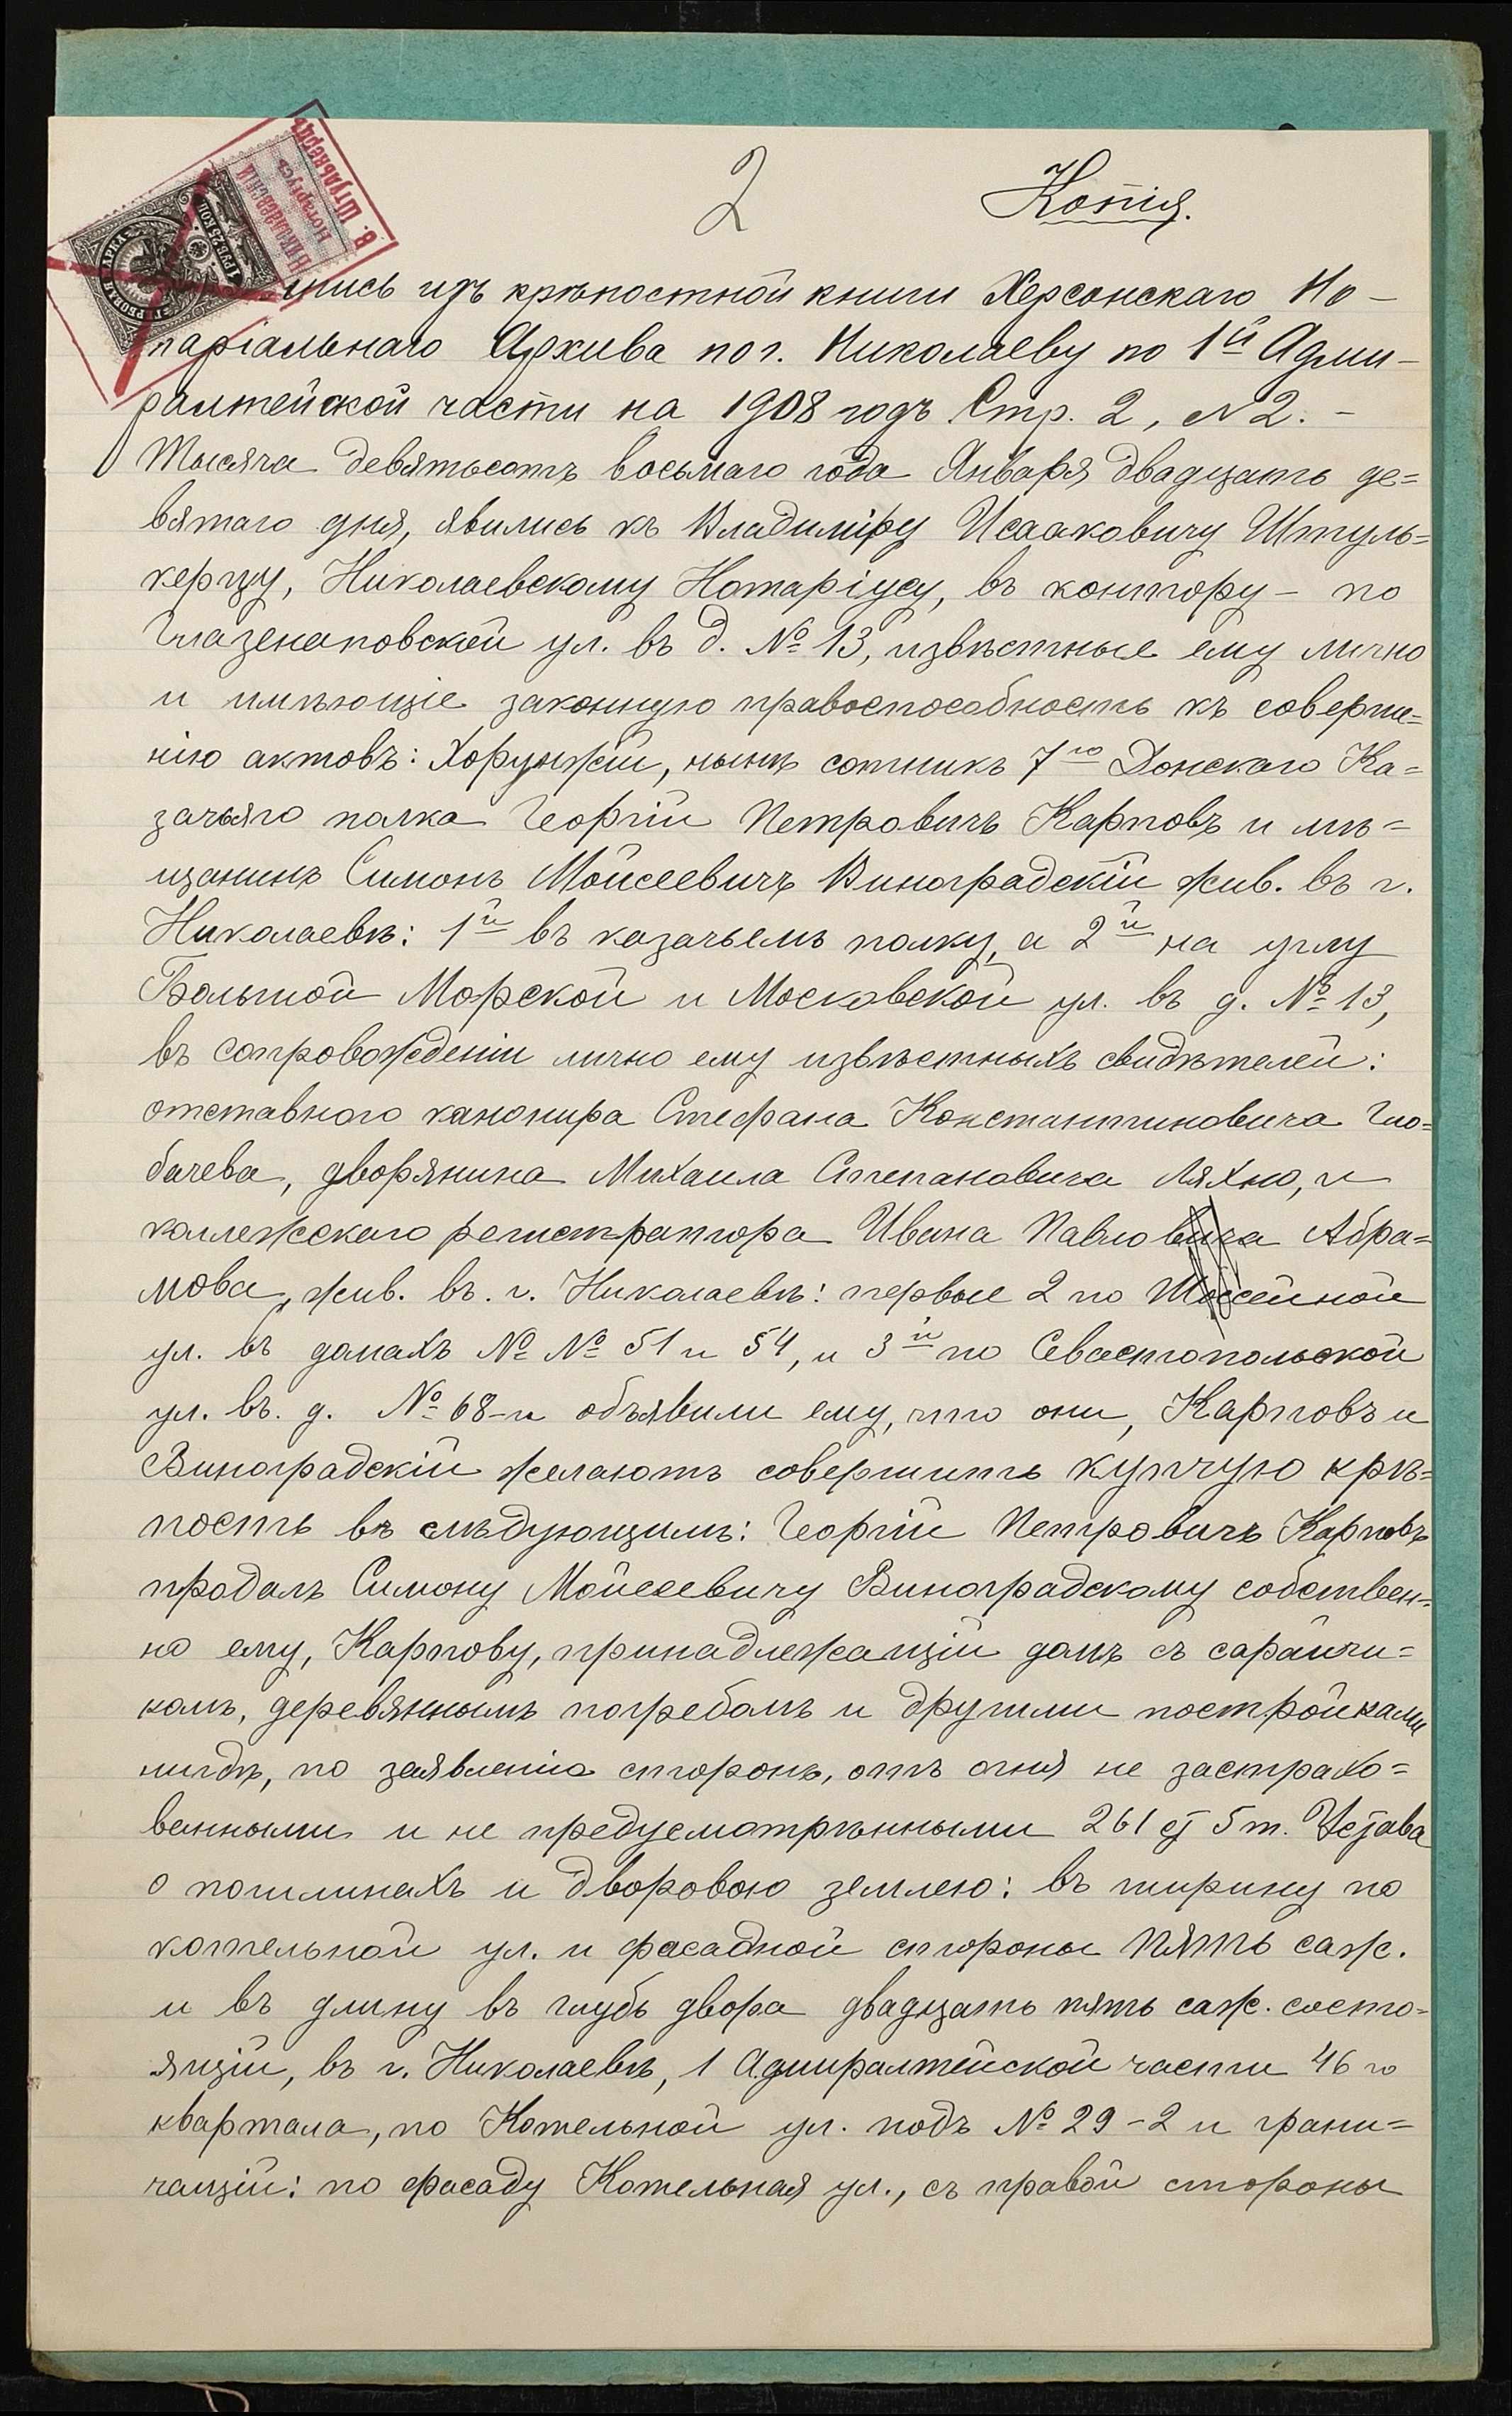 2
Копія.
В. Штулькерцъ
Нотаріусъ
Николаевскій
ГЕРБОВАЯ МАРКА
1 РУБ. 25 КОП.
пись изъ крѣпостной книги Херсонскаго Но-
таріальнаго Архива по г. Николаеву по 1й Адми-
ралтейской части на 1908 годъ Стр. 2, N 2. -
Тысяча девятьсотъ восьмаго года Января двадцать де=
вятаго дня, явились къ Владиміру Исааковичу Штуль=
керцу, Николаевскому Нотаріусу, въ контору - по
Глазенаповской ул. въ д. № 13, извѣстные ему лично
и имѣющіе законную правоспособность къ соверше=
нію актовъ: Хорунжій, нынѣ сотникъ 7го Донского Ка=
зачьяго полка Георгій Петровичъ Карповъ и мѣ=
щанинъ Симонъ Мойсеевичъ Виноградскій жив. въ г.
Николаевѣ: 1й въ казачьемъ полку, а 2й на углу
Большой Морской и Московской ул. въ д. № 13,
въ сопровожденіи лично ему извѣстныхъ свидѣтелей:
отставного канонира Стефана Константиновича Гло=
бачева, дворянина Михаила Степановича Ляхно, и
коллежскаго регистратора Ивана Павловича Абра=
мова, жив. въ. г. Николаевѣ: первые 2 по Шоссейной
ул. въ домахъ № № 51 и 54, и 3й по Севастопольской
ул. въ. д. № 68-и объявили ему, что они, Карповъ и
Виноградскій желаютъ совершить купчую крѣ=
пость въ слѣдующимъ: Георгій Петровичъ Карповъ
продалъ Симону Мойсеевичу Виноградскому собствен=
но ему, Карпову, принадлежащій домъ съ сарайчи=
комъ, деревяннымъ погребомъ и другими постройками
нигдѣ, по заявленію сторонъ, отъ огня не застрахо=
ванными и не предусмотрѣнными 261 ст 5 т. Устава
о пошлинахъ и дворовою землею: въ ширину по
котельной ул. и фасадной стороны пять саж.
и въ длину въ глубь двора двадцать пять саж. состо=
ящій, въ г. Николаевѣ, 1 Адмиралтейской части 46 го
квартала, по Котельной ул. подъ № 29-2 и грани=
чащій: по фасаду Котельная ул., съ правой стороны